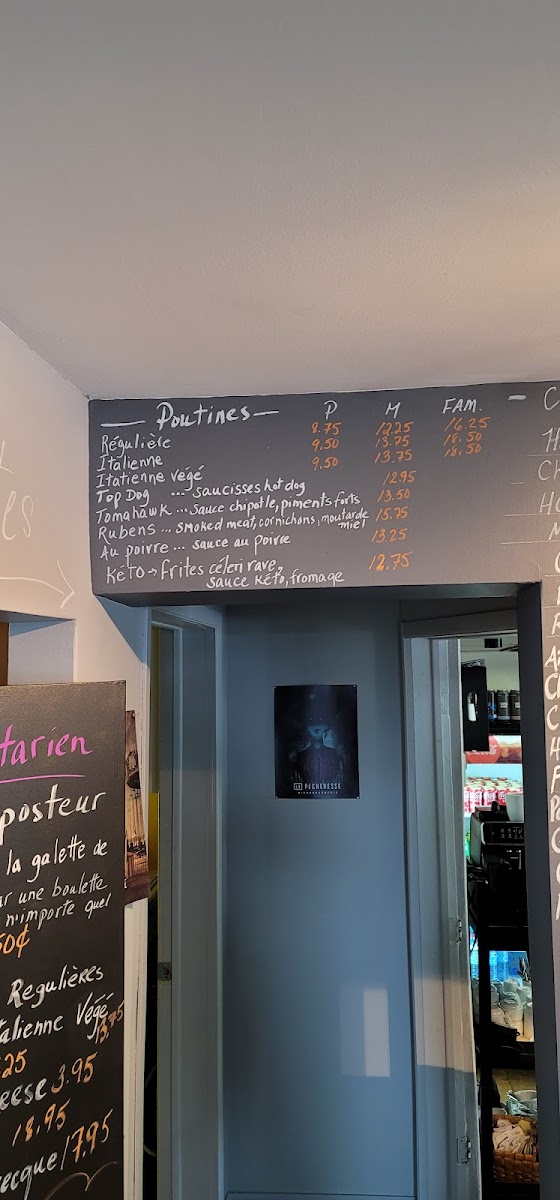 Poutines P M FAM.
Régulière 8.75 12.25 16.25
Italienne 9.50 13.75 18.50
Italienne végé 9.50 13.75 18.50
Top Dog ... saucisses hot dog 12.95
Tomahawk ... sauce chipotle, piments forts 13.50
Rubens ... smoked meat, cornichons, moutarde miel 15.75
Au poivre ... sauce au poivre 13.25
Kéto → frites céleri rave, 12.75
sauce kéto, fromage
LA PECHERESSE
tarien
posteur
la galette de
ar une boulette
n'importe quel
50¢
Regulières
talienne Végé
13.75
25
eese 3.95
18.95
ecque 17.95